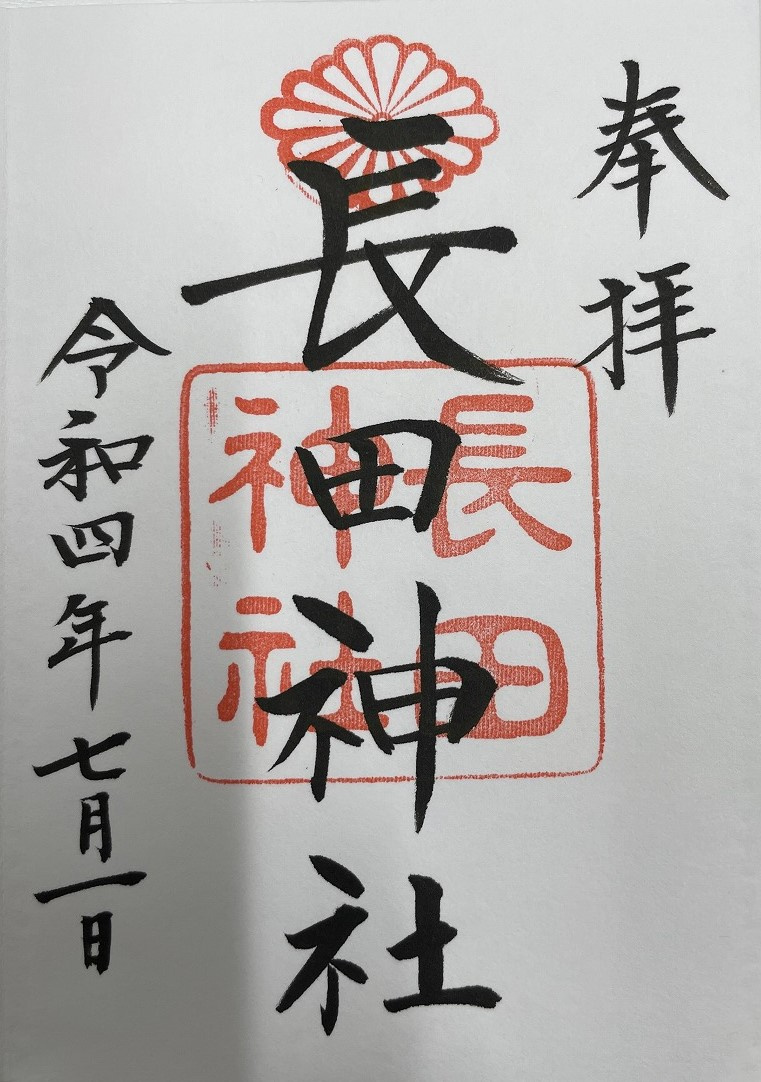 奉拝
長田神社
長田
神社
令和四年七月一日